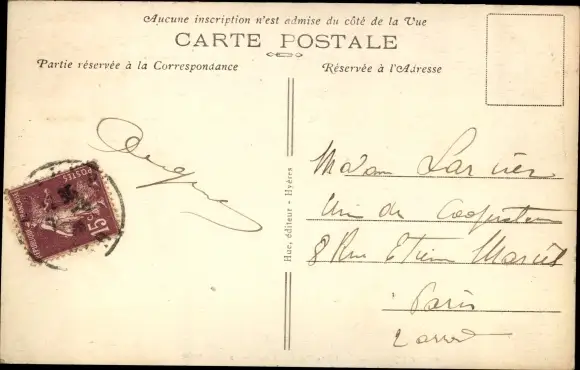 Aucune inscription n'est admise du côté de la Vue
CARTE POSTALE
Partie réservée à la Correspondance
Réservée à l'Adresse
POSTES
15c
Huc, éditeur - Hyères
Madam Larvier
Un
8 Rue Etien Marcel
Paris